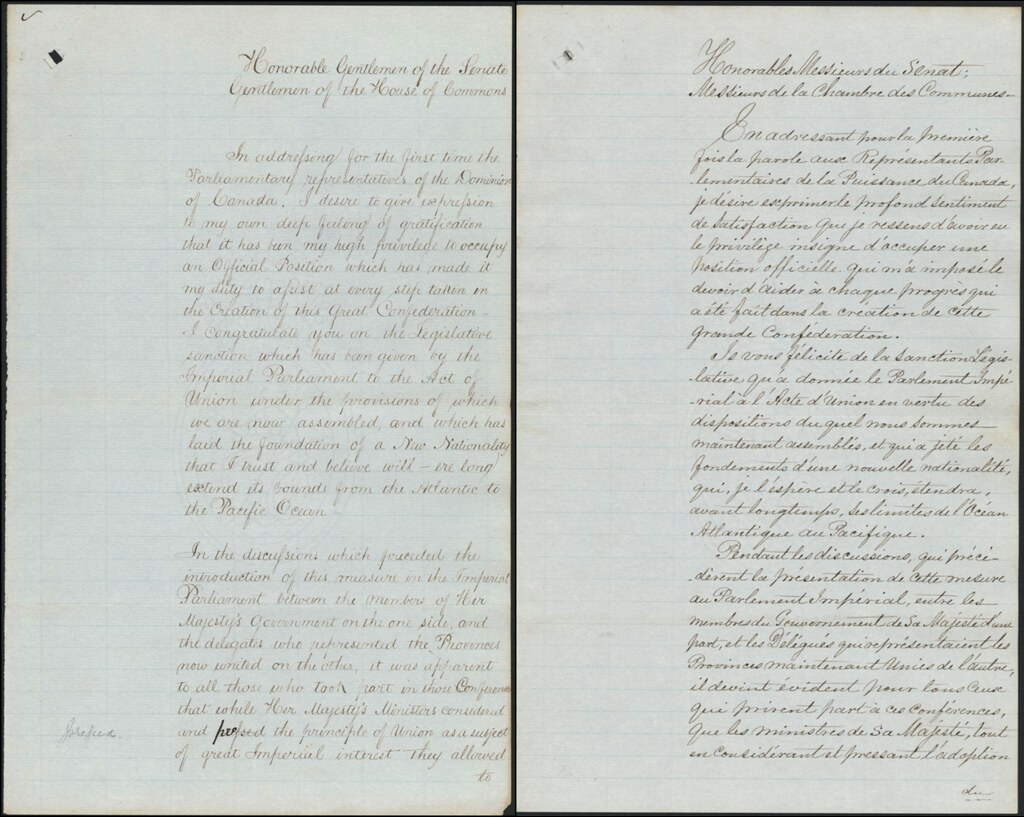 Honorable Gentlemen of the Senate
Gentlemen of the House of Commons
In addressong for the first time the
Parliamentary representatives of the Dominion
of Canada. I desire to give expression
to my own deep feelong of gratification
that it has been my high privilege to occupy
an Official Position which has made it
my duty to assist at every step taken in
the Creation of this Great Confederation -
I Congratulate you on the Legislative
sanction which has been given by the
Imperial Parliament to the Act of
Union under the provisions of which
we are now assembled, and which has
laid the foundation of a New Nationality
that I trust and believe will - ere long
extend its bounds from the Atlantic to
the Pacific Ocean -
In the discussions which preceded the
introduction of this measure in the Imperial
Parliament between the Members of Her
Majesty's Government on the one side, and
the delegates who represented the Provinces
now united on the other, it was apparent
to all those who took part in those Conferences
that while Her Majesty's Ministers considered
and pressed the principle of Union as a subject
of great Imperial interest they allowed
to
Honorables Messieurs du Senat;
Messieurs de la Chambre des Communes-
En adressant pour la première
fois la parole aux Représentants Par-
-lementaires de la Puissance du Canada,
je désire exprimer le profond sentiment
de satisfaction que je ressens d'avoir eu
le privilège insigne d'occuper une
position officielle qui m'a imposé le
devoir d'aider à chaque progrès qui
a été fait dans la création de cette
grande Confédération.
Je vous félicite de la Sanction Légis-
-lative qu'a donnée le Parlement Impé-
-rial à l'Acte d'Union en vertu des
dispositions du quel nous sommes
maintenant assemblés, et qui a jeté les
fondements d'une nouvelle nationalité,
qui, je l'espère et le crois, étendra,
avant longtemps, ses limites de l'Océan
Atlantique au Pacifique.
Pendant les discussions, qui précé-
-dèrent la présentation de cette mesure
au Parlement Impérial, entre les
membres du Gouvernement de Sa Majesté d'une
part, et les Délégués qui représentaient les
Provinces maintenant Unies de l'autre,
il devint évident pour tous ceux
qui prirent part à ces Conférences,
que les ministres de Sa Majesté, tout
en considérant et pressant l'adoption
du